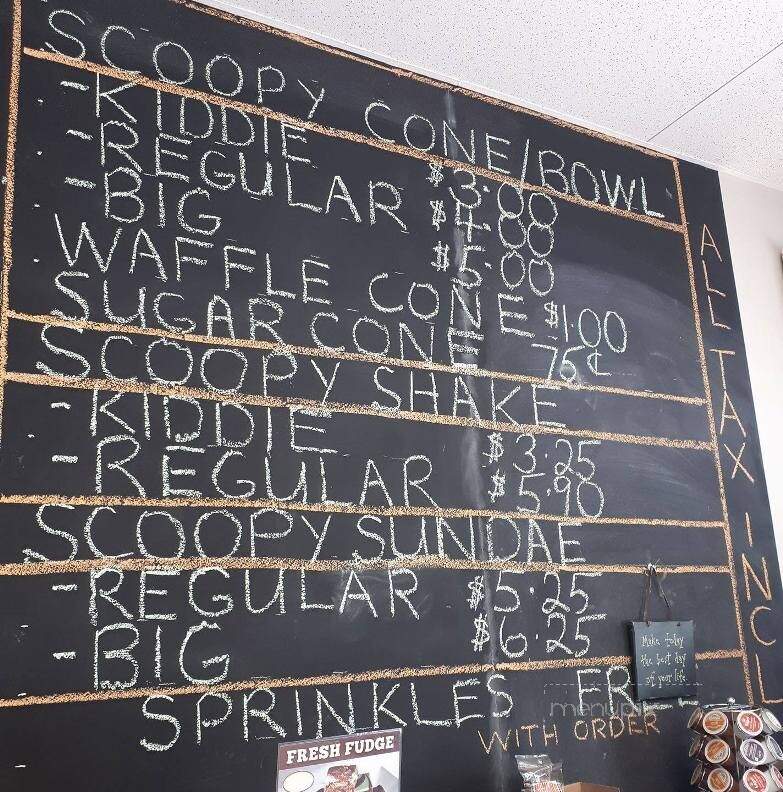 SCOOPY CONE/BOWL
-KIDDIE $3.00
-REGULAR $4.00
-BIG $5.00
WAFFLE CONE $1.00
SUGAR CONE 75¢
SCOOPY SHAKE
-KIDDIE $3.25
-REGULAR $5.90
SCOOPY SUNDAE
-REGULAR $5.25
-BIG $6.25
SPRINKLES FREE
WITH ORDER
ALL TAX INCL
Make today
the best day
of your life
FRESH FUDGE